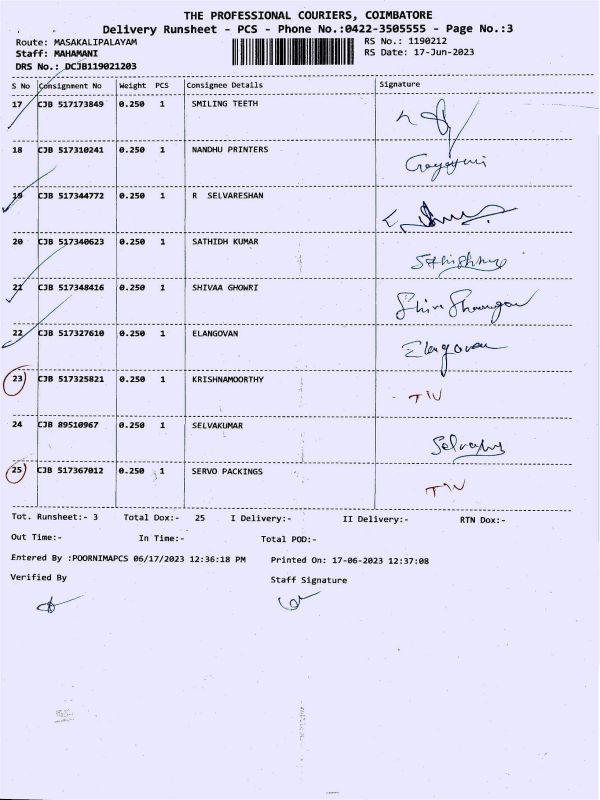 THE PROFESSIONAL COURIERS, COIMBATORE
Delivery Runsheet - PCS - Phone No.:0422-3505555 - Page No.:3
Route: MASAKALIPALAYAM RS No.: 1190212
Staff: MAHAMANI RS Date: 17-Jun-2023
DRS No.: DCJB119021203
S No Consignment No Weight PCS Consignee Details Signature
17 CJB 517173849 0.250 1 SMILING TEETH
18 CJB 517310241 0.250 1 NANDHU PRINTERS Gayayuni
19 CJB 517344772 0.250 1 R SELVARESHAN
20 CJB 517340623 0.250 1 SATHIDH KUMAR
21 CJB 517348416 0.250 1 SHIVAA GHOWRI
22 CJB 517327610 0.250 1 ELANGOVAN Elangovan
23 CJB 517325821 0.250 1 KRISHNAMOORTHY
24 CJB 89510967 0.250 1 SELVAKUMAR
25 CJB 517367012 0.250 1 SERVO PACKINGS
Tot. Runsheet:- 3 Total Dox:- 25 I Delivery:- II Delivery:- RTN Dox:-
Out Time:- In Time:- Total POD:-
Entered By :POORNIMAPCS 06/17/2023 12:36:18 PM Printed On: 17-06-2023 12:37:08
Verified By Staff Signature